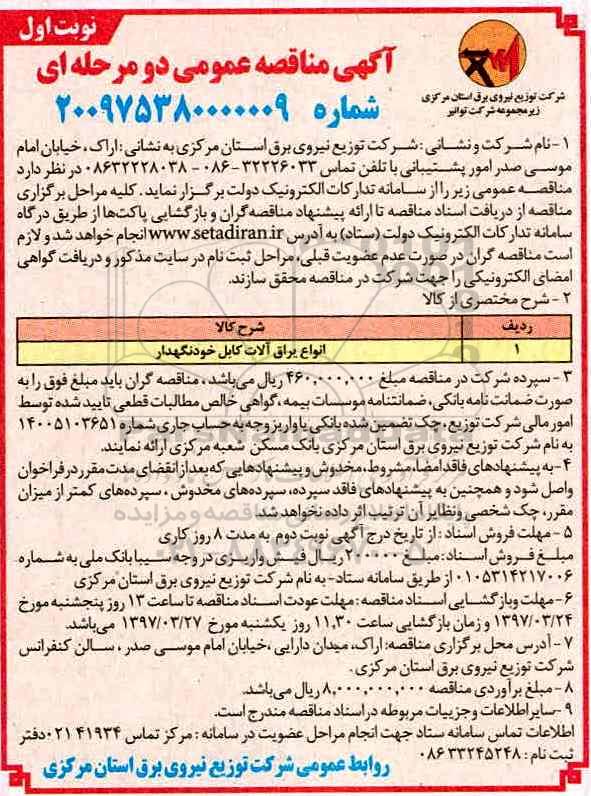 نوبت اول
شرکت توزیع نیروی برق استان مرکزی
زیرمجموعه شرکت توانیر
آگهی مناقصه عمومی دو مرحله ای
شماره ۲۰۰۹۷۵۳۸۰۰۰۰۰۰۹
۱- نام شرکت و نشانی : شرکت توزیع نیروی برق استان مرکزی به نشانی : اراک ، خیابان امام
موسی صدر امور پشتیبانی با تلفن تماس ۳۲۲۲۶۰۳۳-۰۸۶ - ۰۸۶۳۲۲۲۸۰۳۸ در نظر دارد
مناقصه عمومی زیر را از سامانه تدارکات الکترونیک دولت برگزار نماید . کلیه مراحل برگزاری
مناقصه از دریافت اسناد مناقصه تا ارائه پیشنهاد مناقصه گران و بازگشایی پاکت‌ها از طریق درگاه
سامانه تدارکات الکترونیک دولت (ستاد) به آدرس www.setadiran.ir انجام خواهد شد و لازم
است مناقصه گران در صورت عدم عضویت قبلی، مراحل ثبت نام در سایت مذکور و دریافت گواهی
امضای الکترونیکی را جهت شرکت در مناقصه محقق سازند.
۲ - شرح مختصری از کالا
ردیف شرح کالا
۱ انواع یراق آلات کابل خودنگهدار
۳ - سپرده شرکت در مناقصه مبلغ ۴۶۰,۰۰۰,۰۰۰ ریال می‌باشد ، مناقصه گران باید مبلغ فوق را به
صورت ضمانت نامه بانکی ، ضمانتنامه موسسات بیمه ، گواهی خالص مطالبات قطعی تایید شده توسط
امور مالی شرکت توزیع ، چک تضمین شده بانکی یا واریز وجه به حساب جاری شماره ۱۴۰۰۵۱۰۳۶۵۱
به نام شرکت توزیع نیروی برق استان مرکزی بانک مسکن شعبه مرکزی ارائه نمایند.
۴ - به پیشنهادهای فاقد امضا، مشروط، مخدوش و پیشنهادهایی که بعد از انقضای مدت مقرر در فراخوان
واصل شود و همچنین به پیشنهادهای فاقد سپرده، سپرده‌های مخدوش ، سپرده‌های کمتر از میزان
مقرر، چک شخصی و نظایر آن ترتیب اثر داده نخواهد شد.
۵ - مهلت فروش اسناد : از تاریخ درج آگهی نوبت دوم به مدت ۸ روز کاری
مبلغ فروش اسناد : مبلغ ۲۷۰۰۰۰ ریال فیش واریزی در وجه سیبا بانک ملی به شماره
۰۱۰۵۳۱۴۲۱۷۰۰۶ از طریق سامانه ستاد- به نام شرکت توزیع نیروی برق استان مرکزی
۶- مهلت و بازگشایی اسناد مناقصه : مهلت عودت اسناد مناقصه تا ساعت ۱۳ روز پنجشنبه مورخ
۱۳۹۷/۰۳/۲۴ و زمان بازگشایی ساعت ۱۱,۳۰ روز یکشنبه مورخ ۱۳۹۷/۰۳/۲۷ می‌باشد.
۷ - آدرس محل برگزاری مناقصه: اراک، میدان دارایی ، خیابان امام موسی صدر ، سالن کنفرانس
شرکت توزیع نیروی برق استان مرکزی .
۸ - مبلغ برآوردی مناقصه ۸,۰۰۰,۰۰۰,۰۰۰ ریال می‌باشد.
۹- سایر اطلاعات و جزییات مربوطه در اسناد مناقصه مندرج است.
اطلاعات تماس سامانه ستاد جهت انجام مراحل عضویت در سامانه : مرکز تماس ۴۱۹۳۴ ۰۲۱ دفتر
ثبت نام : ۳۳۲۴۵۲۴۸ ۰۸۶
روابط عمومی شرکت توزیع نیروی برق استان مرکزی